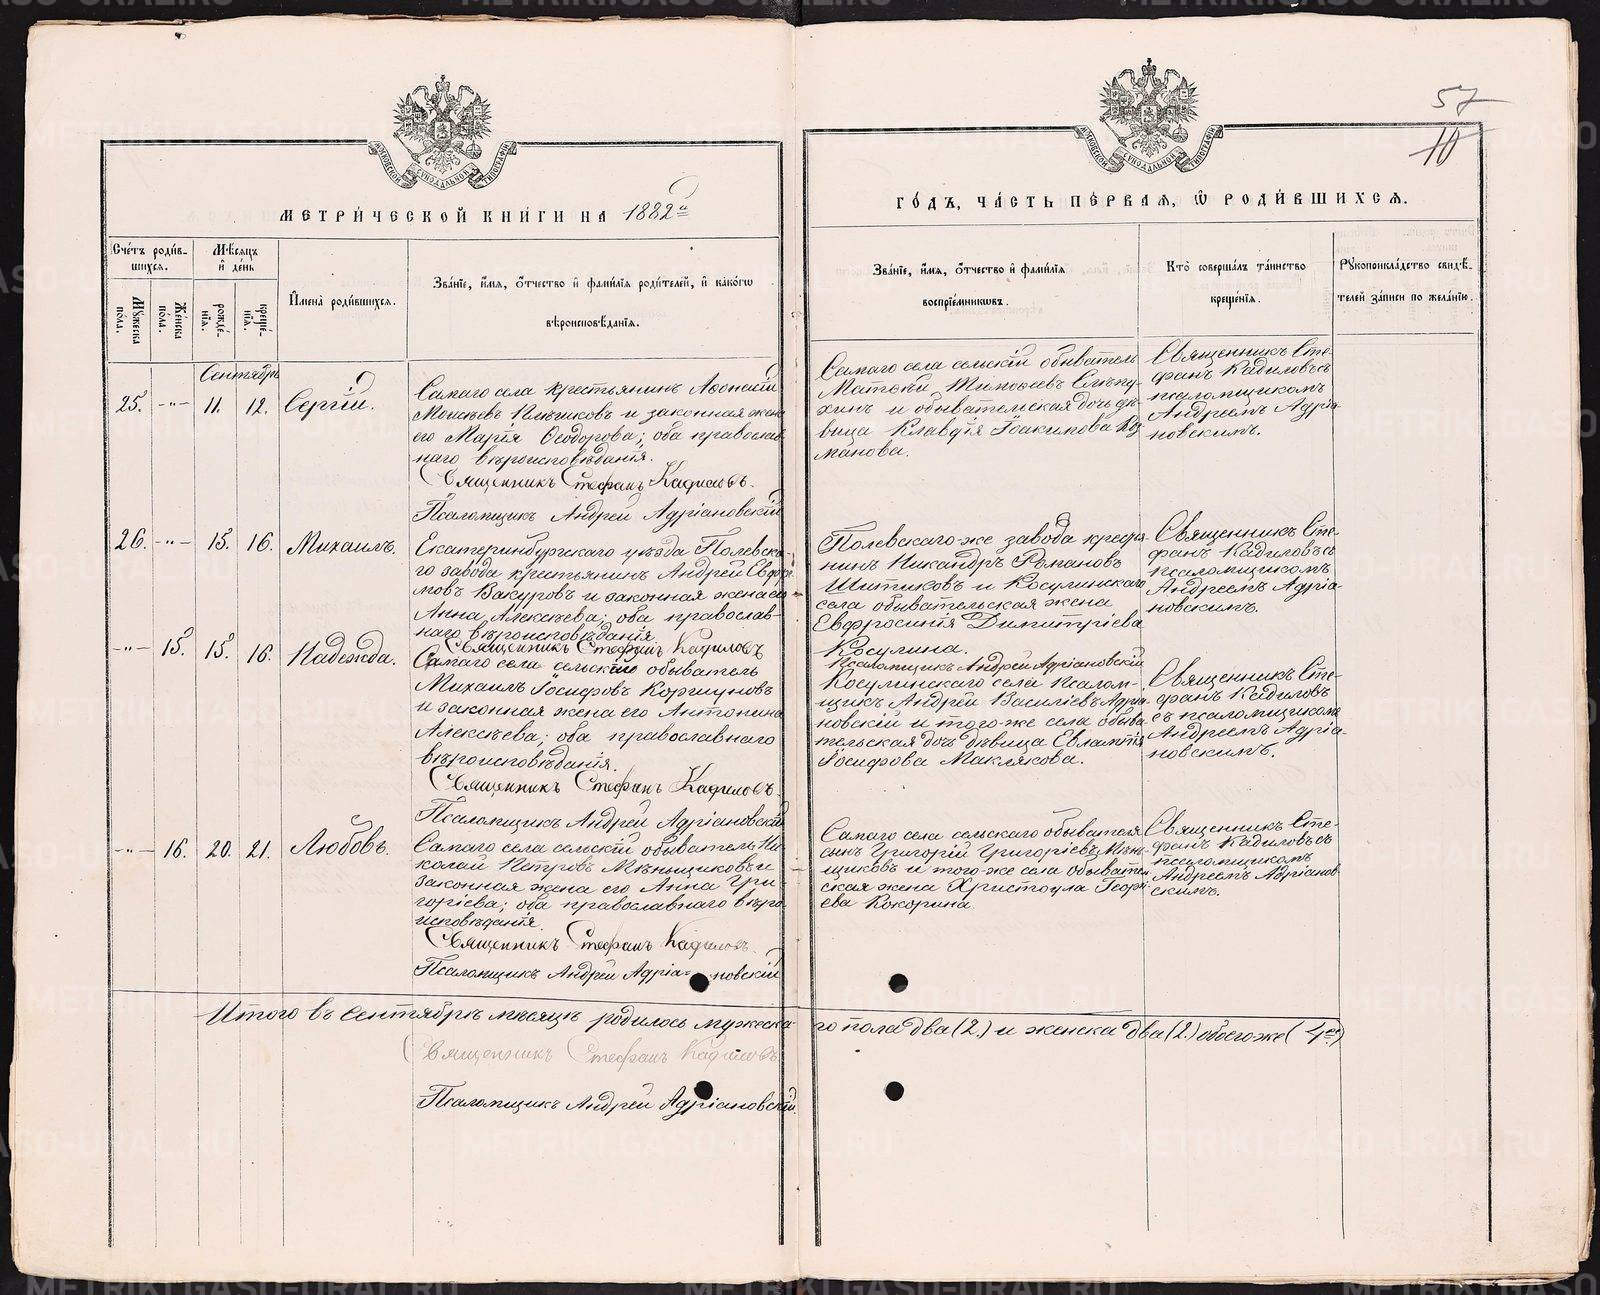 57
10
МЕТРИ́ЧЕСКОЙ КНИ́ГИ НА 1882й
ГО́ДЪ, ЧА́СТЬ ПЕ́РВАЯ, Ѡ РОДИ́ВШИХСЯ.
Сче́тъ роди́в-
шихся.
Мѣ́сяцъ
и҆ де́нь
Мꙋ́жеска
по́ла.
Же́нска
по́ла.
рожде́-
нїя.
креще́-
нїя.
И҆мена̀ роди́вшихся.
Зва́нїе, и҆́мя, ѻ҆́тчество и҆ фами́лїя роди́телей, и҆ како́гѡ
вѣроисповѣ́данїя.
Зва́нїе, и҆́мя, ѻ҆́тчество и҆ фами́лїя
воспрїе́мникѡвъ.
Кто̀ соверша́лъ та́инство
креще́нїя.
Рꙋкоприкла́дство свидѣ́-
телей за́писи по жела́нїю.
Сентябрь
25. -"- 11. 12. Сергій.
Самаго села крестьянинъ Аѳонасій
Моисѣевъ и законная жена
его Марія Ѳеодорова; оба православ
наго вѣроисповѣданія.
Священникъ Стефанъ Кадиловъ.
Псаломщикъ Андрей Адріановскій
Самаго села сельскій обыватель
Матѳѣй Тимоѳеевъ Слѣпу-
хинъ и обывательская дочь дѣ-
вица Клавдія Іоакимова Коз
манова.
Священникъ Сте-
фанъ Кадиловъ съ
псаломщикомъ
Андреемъ Адріа-
новскимъ.
26. -"- 15. 16. Михаилъ.
Екатеринбургскаго уѣзда Полевска-
го завода крестьянинъ Андрей Евфи
мовъ Вакуровъ и законная жена его
Анна Алексѣева; оба православ-
наго вѣроисповѣданія.
Священникъ Стефанъ Кадиловъ
Полевскаго-же завода крестья
нинъ Никандръ Романовъ
Шитиковъ и Косулинскаго
села обывательская жена
Евфросинія Димитріева
Косулина.
Псаломщикъ Андрей Адріановскій
Священникъ Сте-
фанъ Кадиловъ съ
псаломщикомъ
Андреемъ Адріа-
новскимъ.
-"- 15. 15. 16. Надежда.
Самаго села сельскій обыватель
Михаилъ Іосифовъ Коршуновъ
и законная жена его Антонина
Алексѣева; оба православнаго
вѣроисповѣданія.
Священникъ Стефанъ Кадиловъ.
Псаломщикъ Андрей Адріановскій
Косулинскаго села псалом-
щикъ Андрей Василіевъ Адріа
новскій и того-же села обыва
тельская дочь дѣвица Евлампія
Іосифова Маклякова.
Священникъ Сте-
фанъ Кадиловъ
съ псаломщикомъ
Андреемъ Адріа-
новскимъ.
-"- 16. 20. 21. Любовь.
Самаго села сельскій обыватель Ни
колай Петровъ Мѣньщиковъ и
законная жена его Анна Гри-
горіева; оба православнаго вѣро
исповѣданія.
Священникъ Стефанъ Кадиловъ.
Псаломщикъ Андрей Адріановскій
Самаго села сельскаго обывателя
сынъ Григорій Григоріевъ Мѣнь
щиковъ и того-же села обыватель
ская жена Христоула Георгі
ева Кокорина.
Священникъ Сте-
фанъ Кадиловъ съ
псаломщикомъ
Андреемъ Адріанов
скимъ.
Итого въ Сентябрѣ мѣсяцѣ родилось мужеска го пола два (2.) и женска два (2.) обоего же (4ре)
Священникъ Стефанъ Кадиловъ
Псаломщикъ Андрей Адріановскій.
METRIKI.GASO-URAL.RU